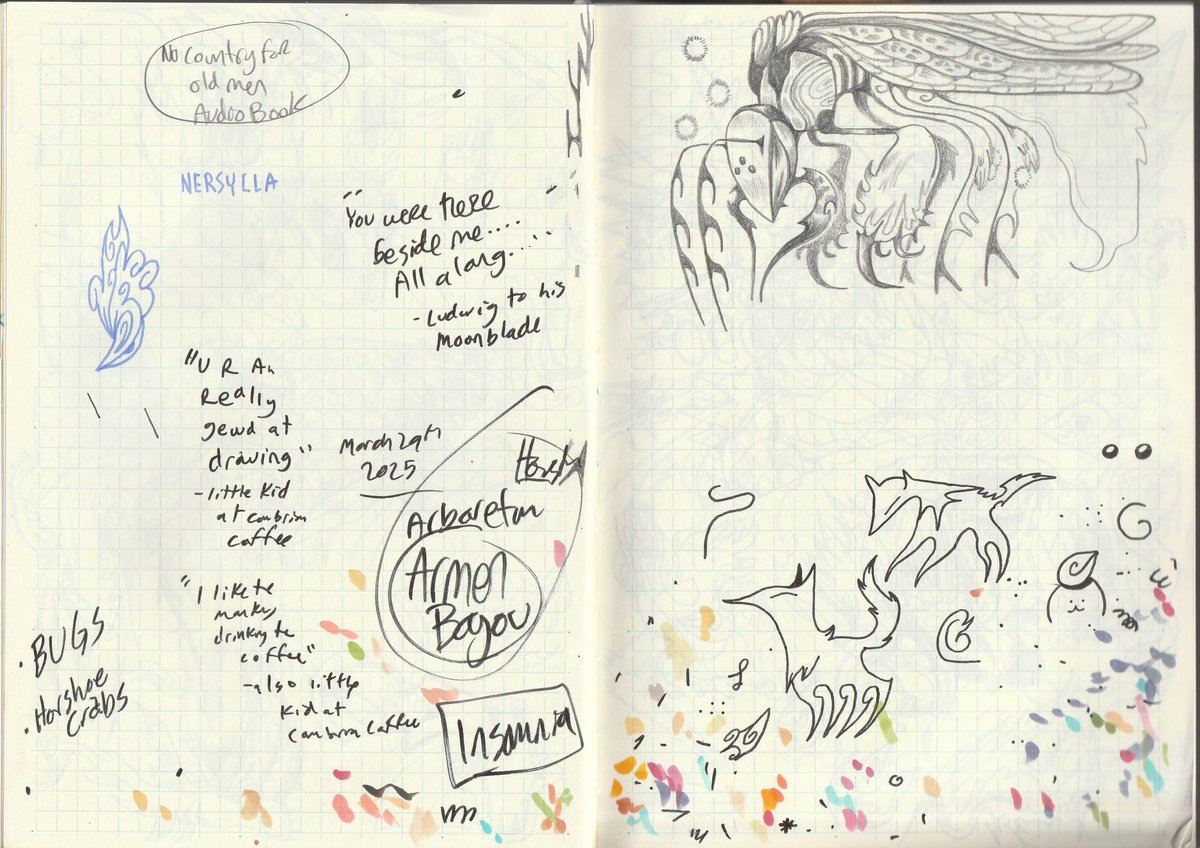 No country for
old men
Audoo Book
NERSYLLA
"You were there
beside me....
All along.....
- Ludwig to his
Moonblade
"U R An
Really
gewd at
drawing"
- little kid
at cambrian
coffee
March 29th
2025
Arboretum
Armen
Bayou
"I like the
monkey
drinking the
coffee"
- also little
kid at
Cambrian Coffee
• BUGS
• Horshoe
Crabs
Insomnia